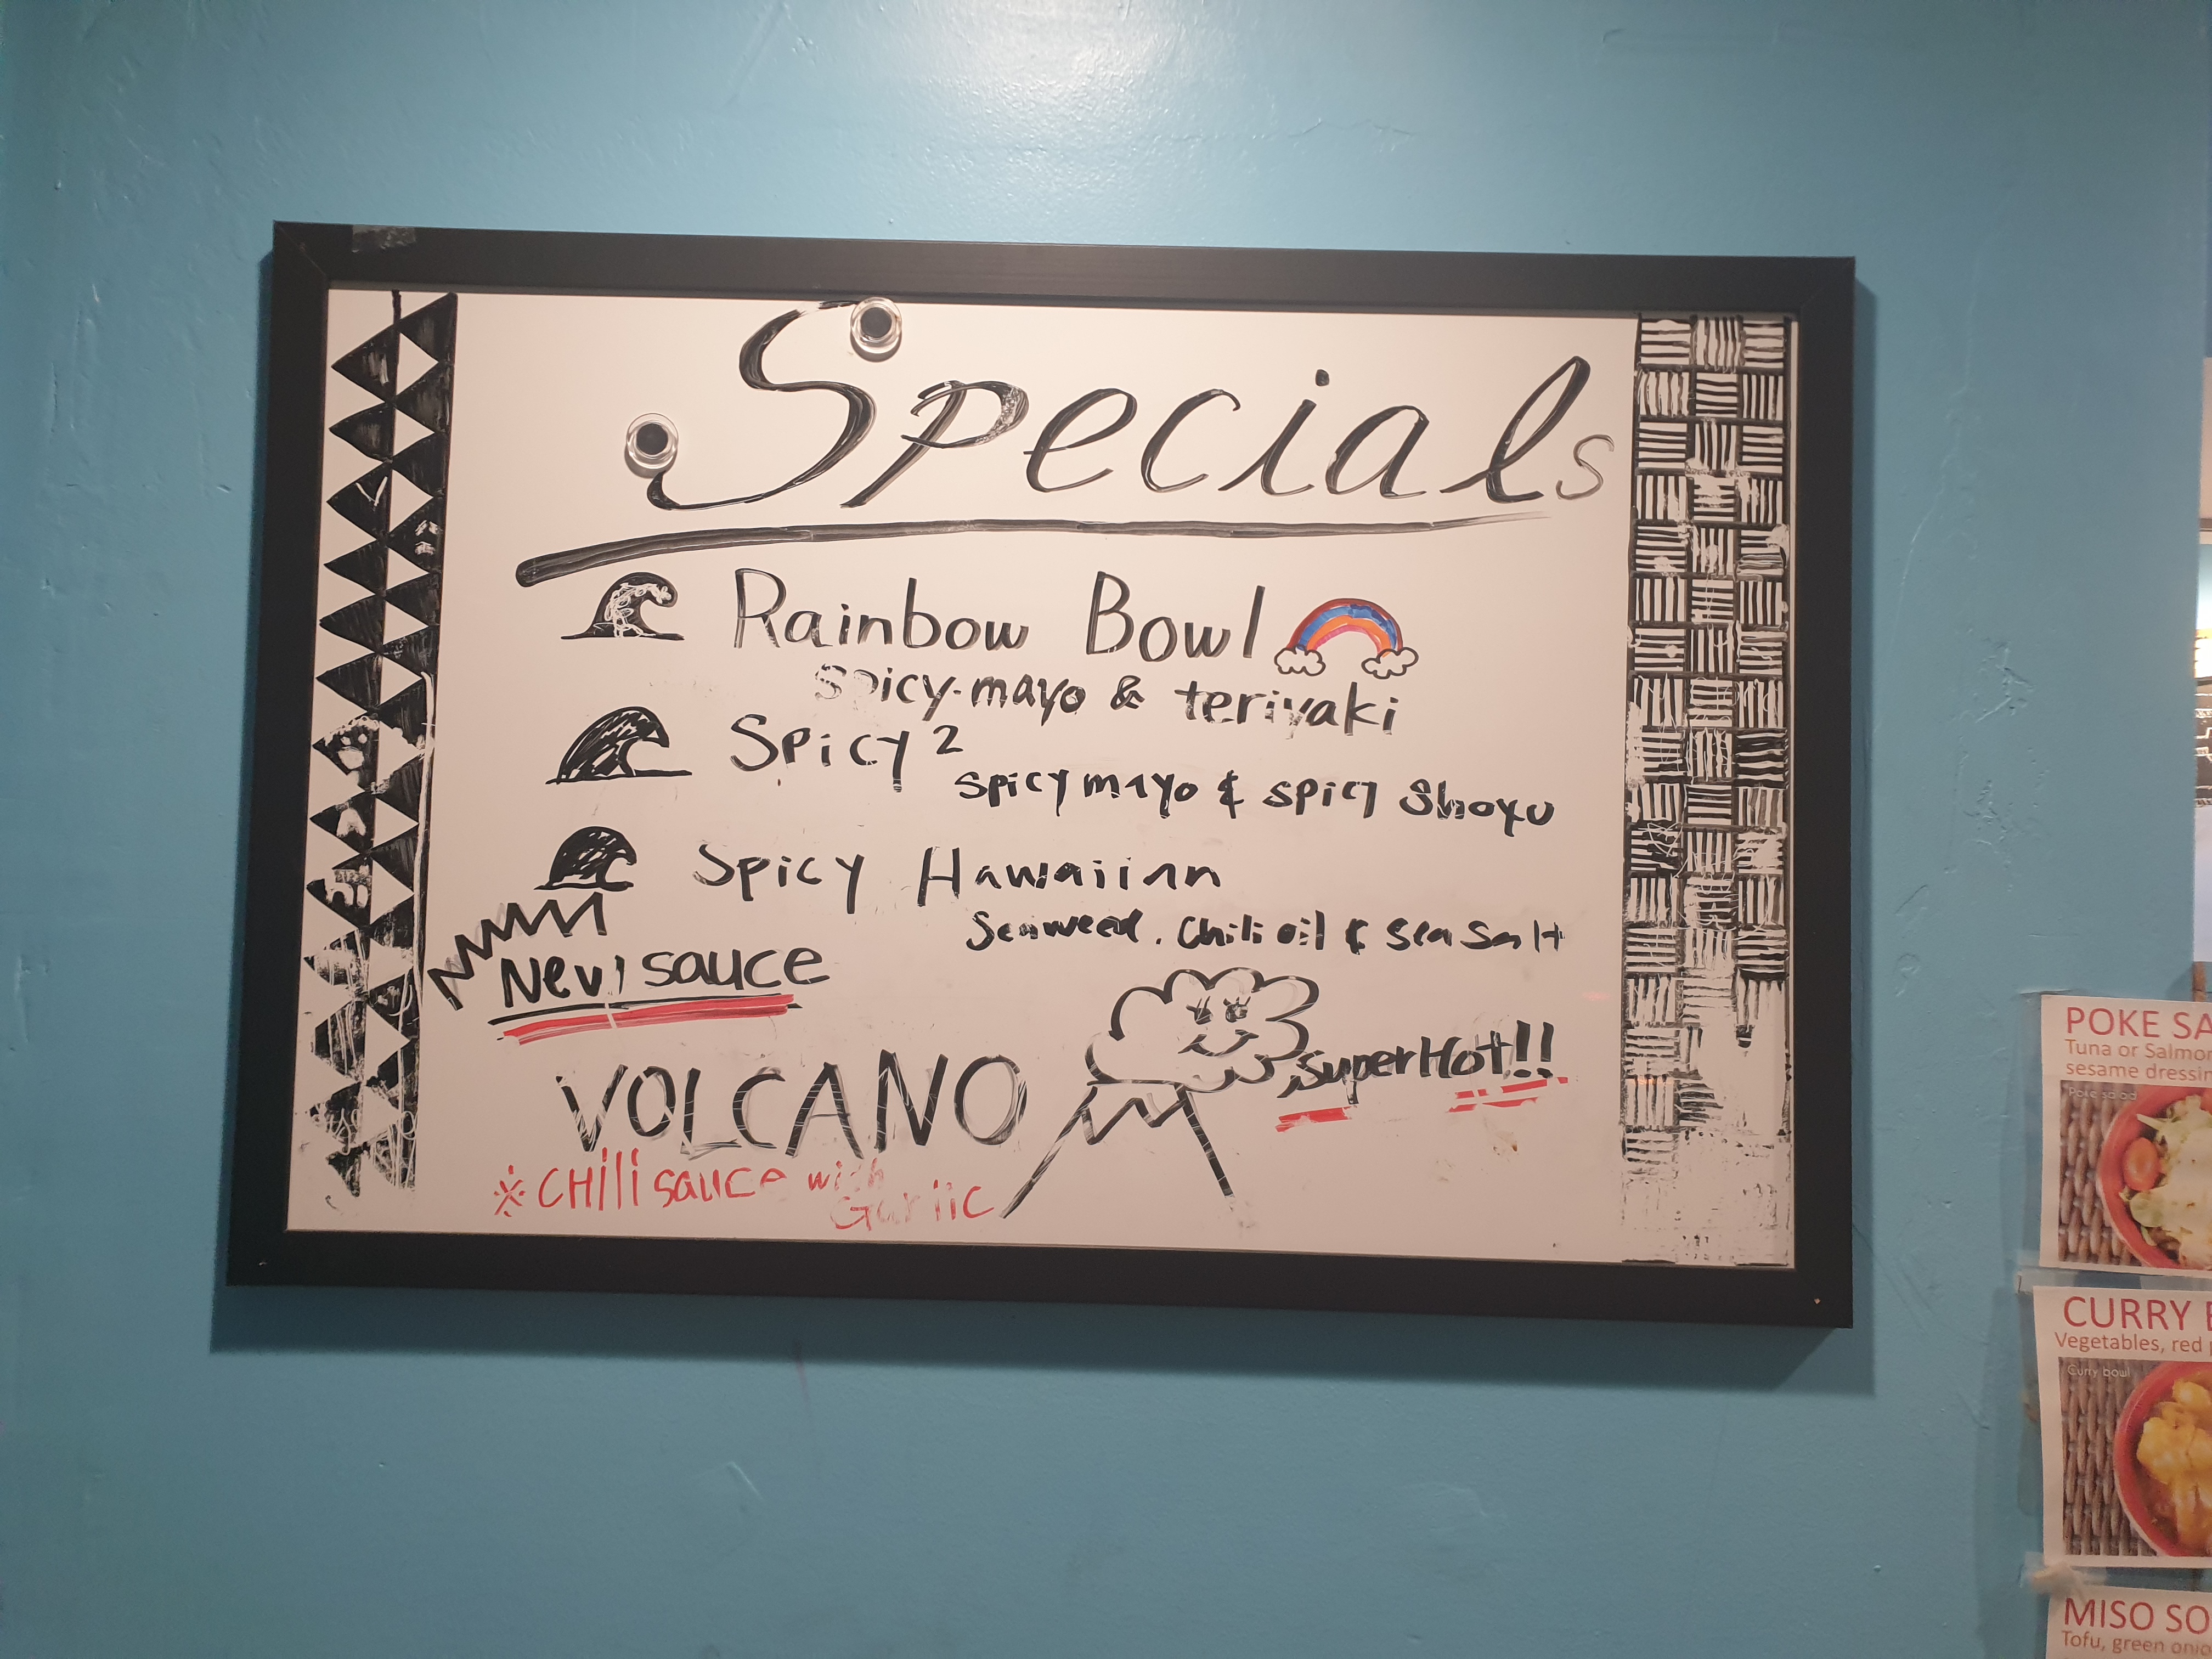 Specials
Rainbow Bowl
spicy-mayo & teriyaki
Spicy 2
spicy mayo & spicy Shoyu
Spicy Hawaiian
Seaweed, Chili oil & sea salt
New! sauce
VOLCANO
SuperHot!!
※CHili sauce with
Garlic
POKE SA
Tuna or Salmon
sesame dressin
Poke salad
CURRY
Vegetables, red
Curry bowl
MISO SO
Tofu, green onio